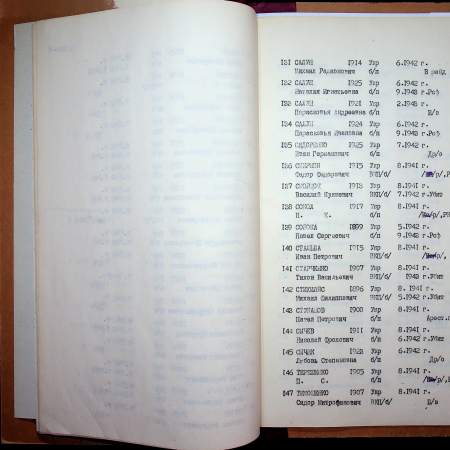 131 САЛУН 1914 Укр 6.1942 г.
Михаил Родионович б/п В рейд
132 САЛУН 1925 Укр 6.1942 г.
Наталия Игнатьевна б/п 9.1943 г.Роф
133 САЛУН 1921 Укр 2.1943 г.
Парасковья Андреевна б/п В/о
134 САЛУН 1924 Укр 6.1942 г.
Парасковья Ивановна б/п 9.1943 г.Роф
135 СИДОРЕНКО 1925 Укр 7.1942 г.
Иван Германович б/п Др/о
136 СМИРНОВ 1915 Укр 8.1941 г.
Федор Федорович ВКП/б/
137 1913 Укр 8.1941 г.
Василий ВКП/б/ 7.1942 г.Убит
138 СОКОЛ 1917 Укр 8.1941 г.
П. К. б/п
139 СОРОКА 1899 Укр 5.1942 г.
Павел Сергеевич б/п 9.1943 г.Роф
140 1915 Укр 8.1941 г.
Иван Петрович ВКП/б/
141 СТАРЧЕНКО 1907 Укр 8.1941 г.
Тихон Васильевич ВКП/б/ 1943 г.Убит
142 1896 Укр 8.1941 г.
Михаил Филиппович ВКП/б/ 5.1942 г.Убит
143 СТУПАКОВ 1900 Укр 8.1941 г.
Павел Петрович б/п Арест.
144 СЫЧЕВ 1911 Укр 8.1941 г.
Николай Фролович б/п 6.1942 г.Убит
145 СЫЧИК 1923 Укр 6.1942 г.
Любовь Степановна б/п Др/о
146 ТЕРЕЩЕНКО 1905 Укр 8.1941 г.
П. С. б/п
147 1907 Укр 8.1941 г.
Сидор Митрофанович ВКП/б/ В/о